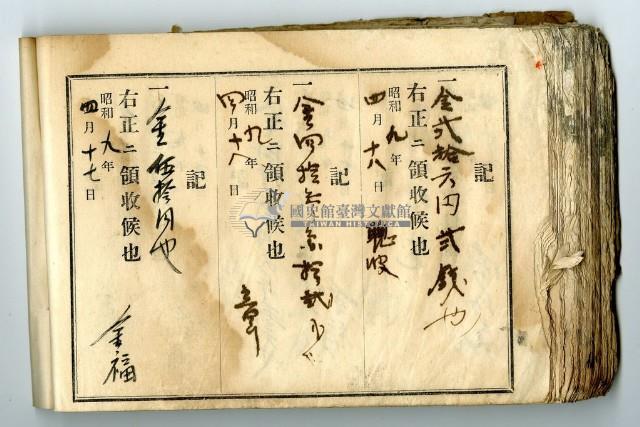 記
一金弐拾六円弐銭也
右正ニ領收候也
昭和九年
四月十八日
記
一金四拾
右正ニ領收候也
昭和九年
四月十八日
記
一金伍拾円也
右正ニ領收候也
昭和九年
四月十七日
金福
國史館臺灣文獻館
TAIWAN HISTORICA